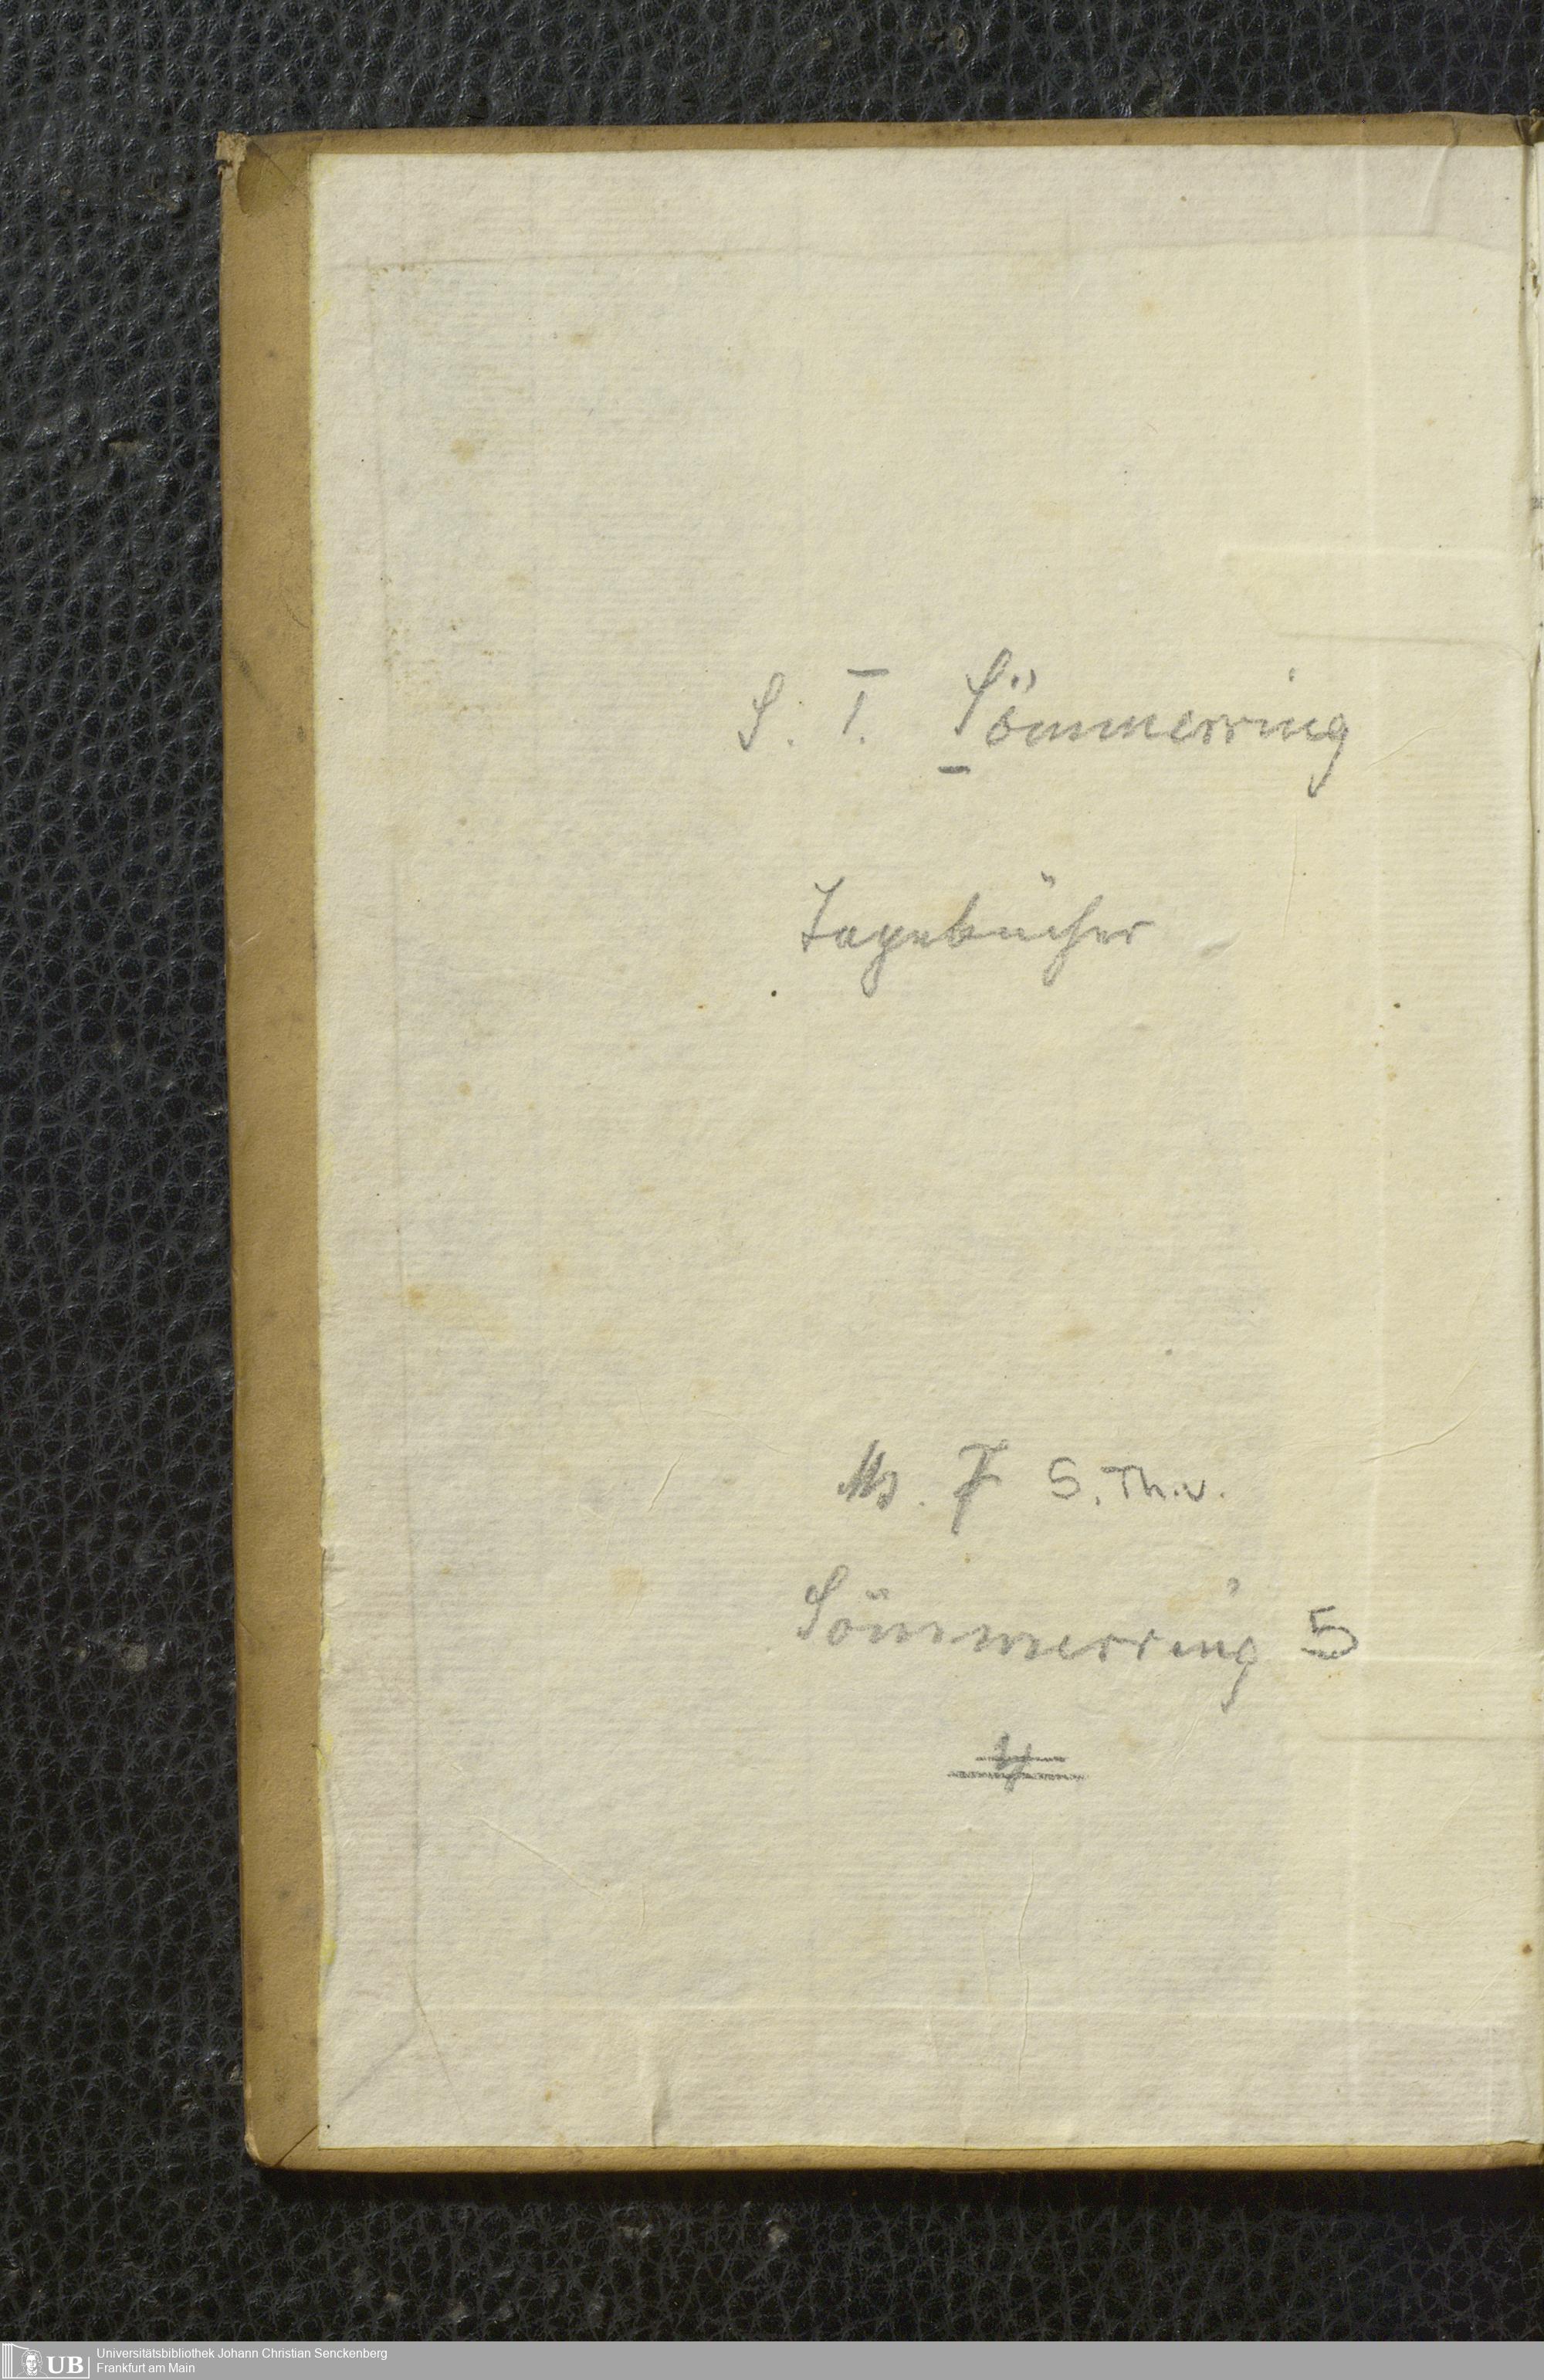 S. T. Sömmerring
Tagebücher
Ms. F S. Th. v.
Sömmerring 5
UB Universitätsbibliothek Johann Christian Senckenberg
Frankfurt am Main